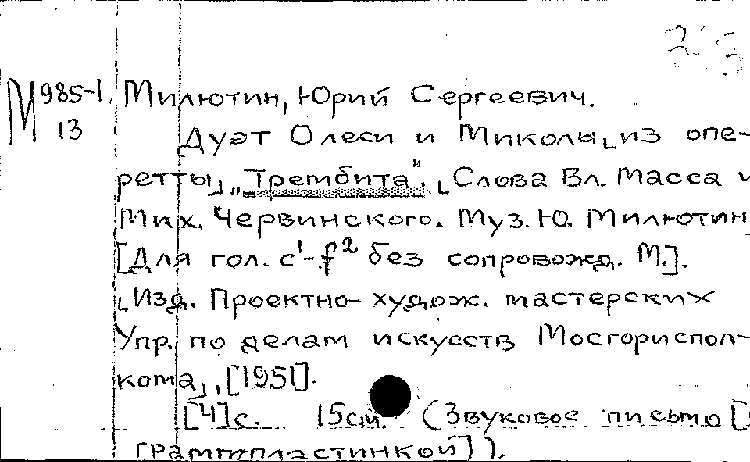 М 985-1 Милютин, Юрий Сергеевич.
13 Дуэт Олеси и Миколы [из опе-
ретты] „Трембита". [Слова Вл. Масса и
Мих. Червинского. Муз. Ю. Милютин
[Для гол. c¹-f² без сопровожд. М.].
[Изд. Проектно-худож. мастерских
Упр. по делам искусств Мосгориспол-
кома], [1951].
[4]с. 15см. (Звуковое письмо [
граммпластинкой]).